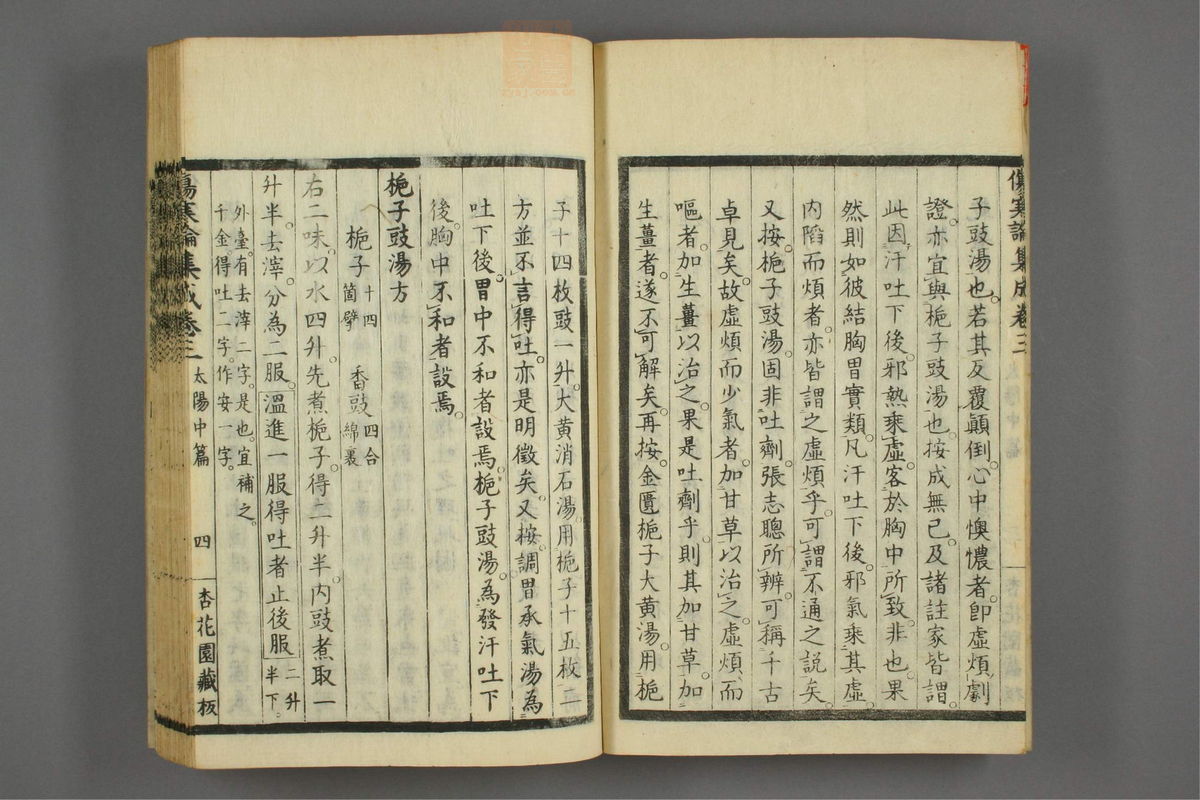 傷寒論集成卷三
子豉湯也。若其反覆顛倒。心中懊憹者。卽虛煩劇
證。亦宜與梔子豉湯也。按成無已。及諸註家皆謂。
此因汗吐下後。邪熱乘虛。客於胸中所致。非也。果
然則如彼結胸胃實類。凡汗吐下後。邪氣乘其虛。
內陷而煩者。亦皆謂之虛煩乎。可謂不通之說矣。
又按。梔子豉湯。固非吐劑。張志聰所辨。可稱千古
卓見矣。故虛煩而少氣者。加甘草以治之。虛煩而
嘔者。加生薑以治之。果是吐劑乎。則其加甘草。加
生薑者。遂不可解矣。再按。金匱梔子大黃湯。用梔
子十四枚豉一升。大黃消石湯。用梔子十五枚。二
方並不言得吐。亦是明徵矣。又按。調胃承氣湯。為
吐下後。胃中不和者設焉。梔子豉湯。為發汗吐下
後。胸中不和者設焉。
梔子豉湯方
梔子十四箇擘 香豉四合綿裹
右二味。以水四升。先煮梔子。得二升半。內豉煮取一
升半。去滓。分為二服。溫進一服得吐者止後服
二升半下。
外臺。有去滓二字。是也。宜補之。
千金得吐二字。作安一字。
傷寒論集成卷三 太陽中篇 四 杏花園藏板